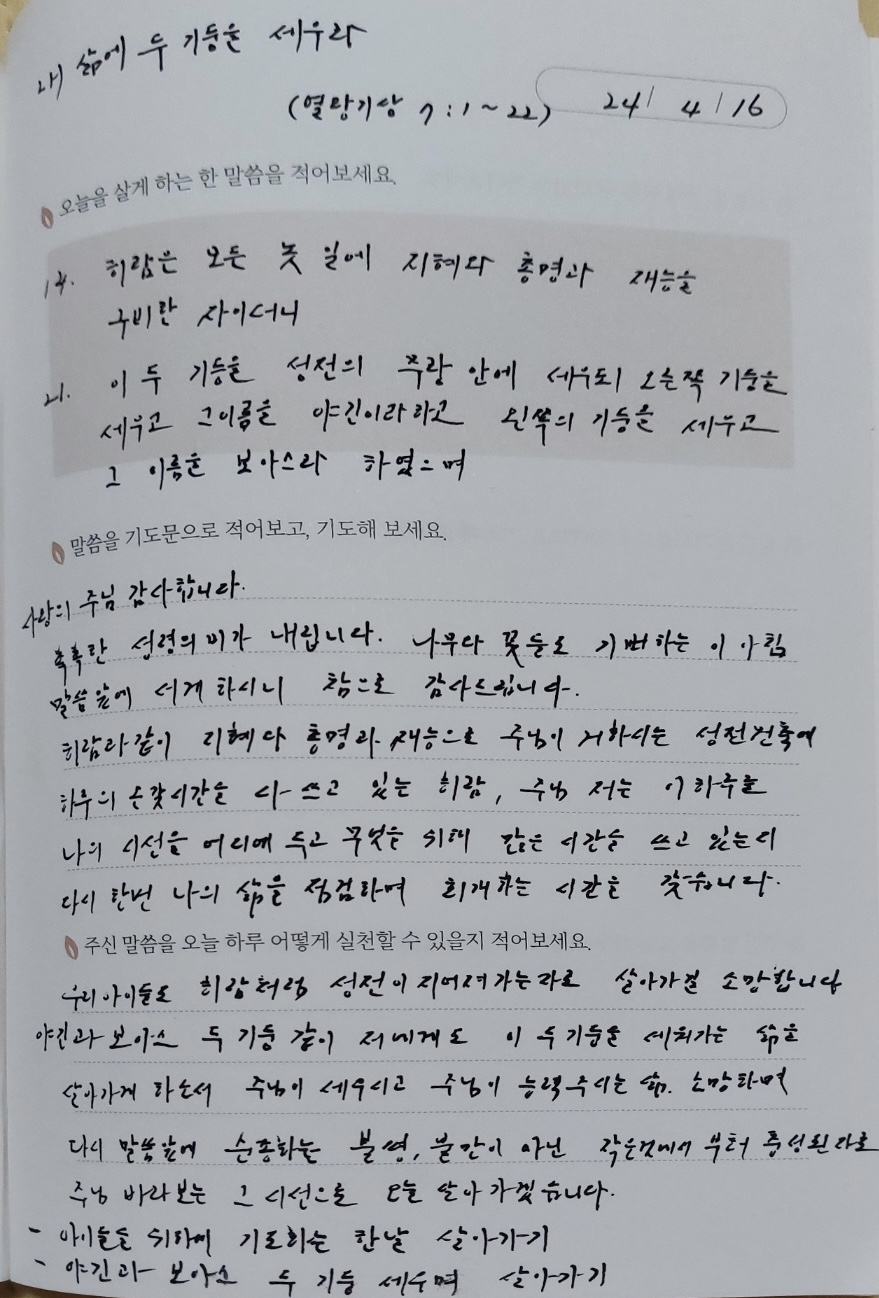 내 삶에 두 기둥을 세우라
(열왕기상 7:1~22) 24/ 4/ 16
오늘을 살게 하는 한 말씀을 적어보세요.
14. 히람은 모든 놋 일에 지혜와 총명과 재능을
구비한 자이더니
21. 이 두 기둥을 성전의 주랑 안에 세우되 오른쪽 기둥을
세우고 그이름을 야긴이라하고 왼쪽의 기둥을 세우고
그 이름을 보아스라 하였으며
말씀을 기도문으로 적어보고, 기도해 보세요.
사랑의 주님 감사합니다.
촉촉한 성령의 비가 내립니다. 나무와 꽃들도 기뻐하는 이 아침
말씀앞에 서게 하시니 참으로 감사드립니다.
히람과같이 지혜와 총명과 재능으로 주님이 거하시는 성전건축에
하루의 온갖시간을 다 쓰고 있는 히람, 주님 저는 이 하루를
나의 시선을 어디에 두고 무엇을 위해 많은 시간을 쓰고 있는지
다시 한번 나의 삶을 점검하며 회개하는 시간을 갖습니다.
주신 말씀을 오늘 하루 어떻게 실천할 수 있을지 적어보세요.
우리아이들도 히람처럼 성전이 지어져가는자로 살아가길 소망합니다
야긴과 보아스 두 기둥 같이 저에게도 이 두기둥을 세워가는 삶을
살아가게 하소서 주님이 세우시고 주님이 능력주시는 삶. 소망하며
다시 말씀앞에 순종하는 불평, 불만이 아닌 작은것에서 부터 충성된자로
주님 바라보는 그 시선으로 오늘 살아 가겠습니다.
- 아이들을 위하여 기도하는 한날 살아가기
- 야긴과 보아스 두 기둥 세우며 살아가기